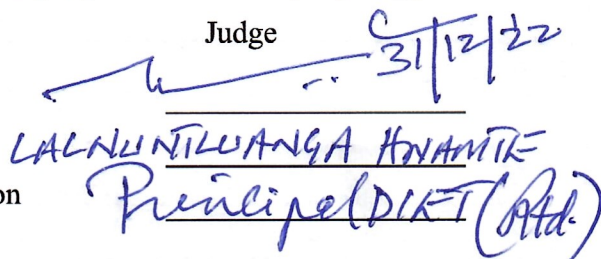 Judge
31/12/22
LALNUNTLUANGA HNAMTE
on Principal DIET (Rtd.)